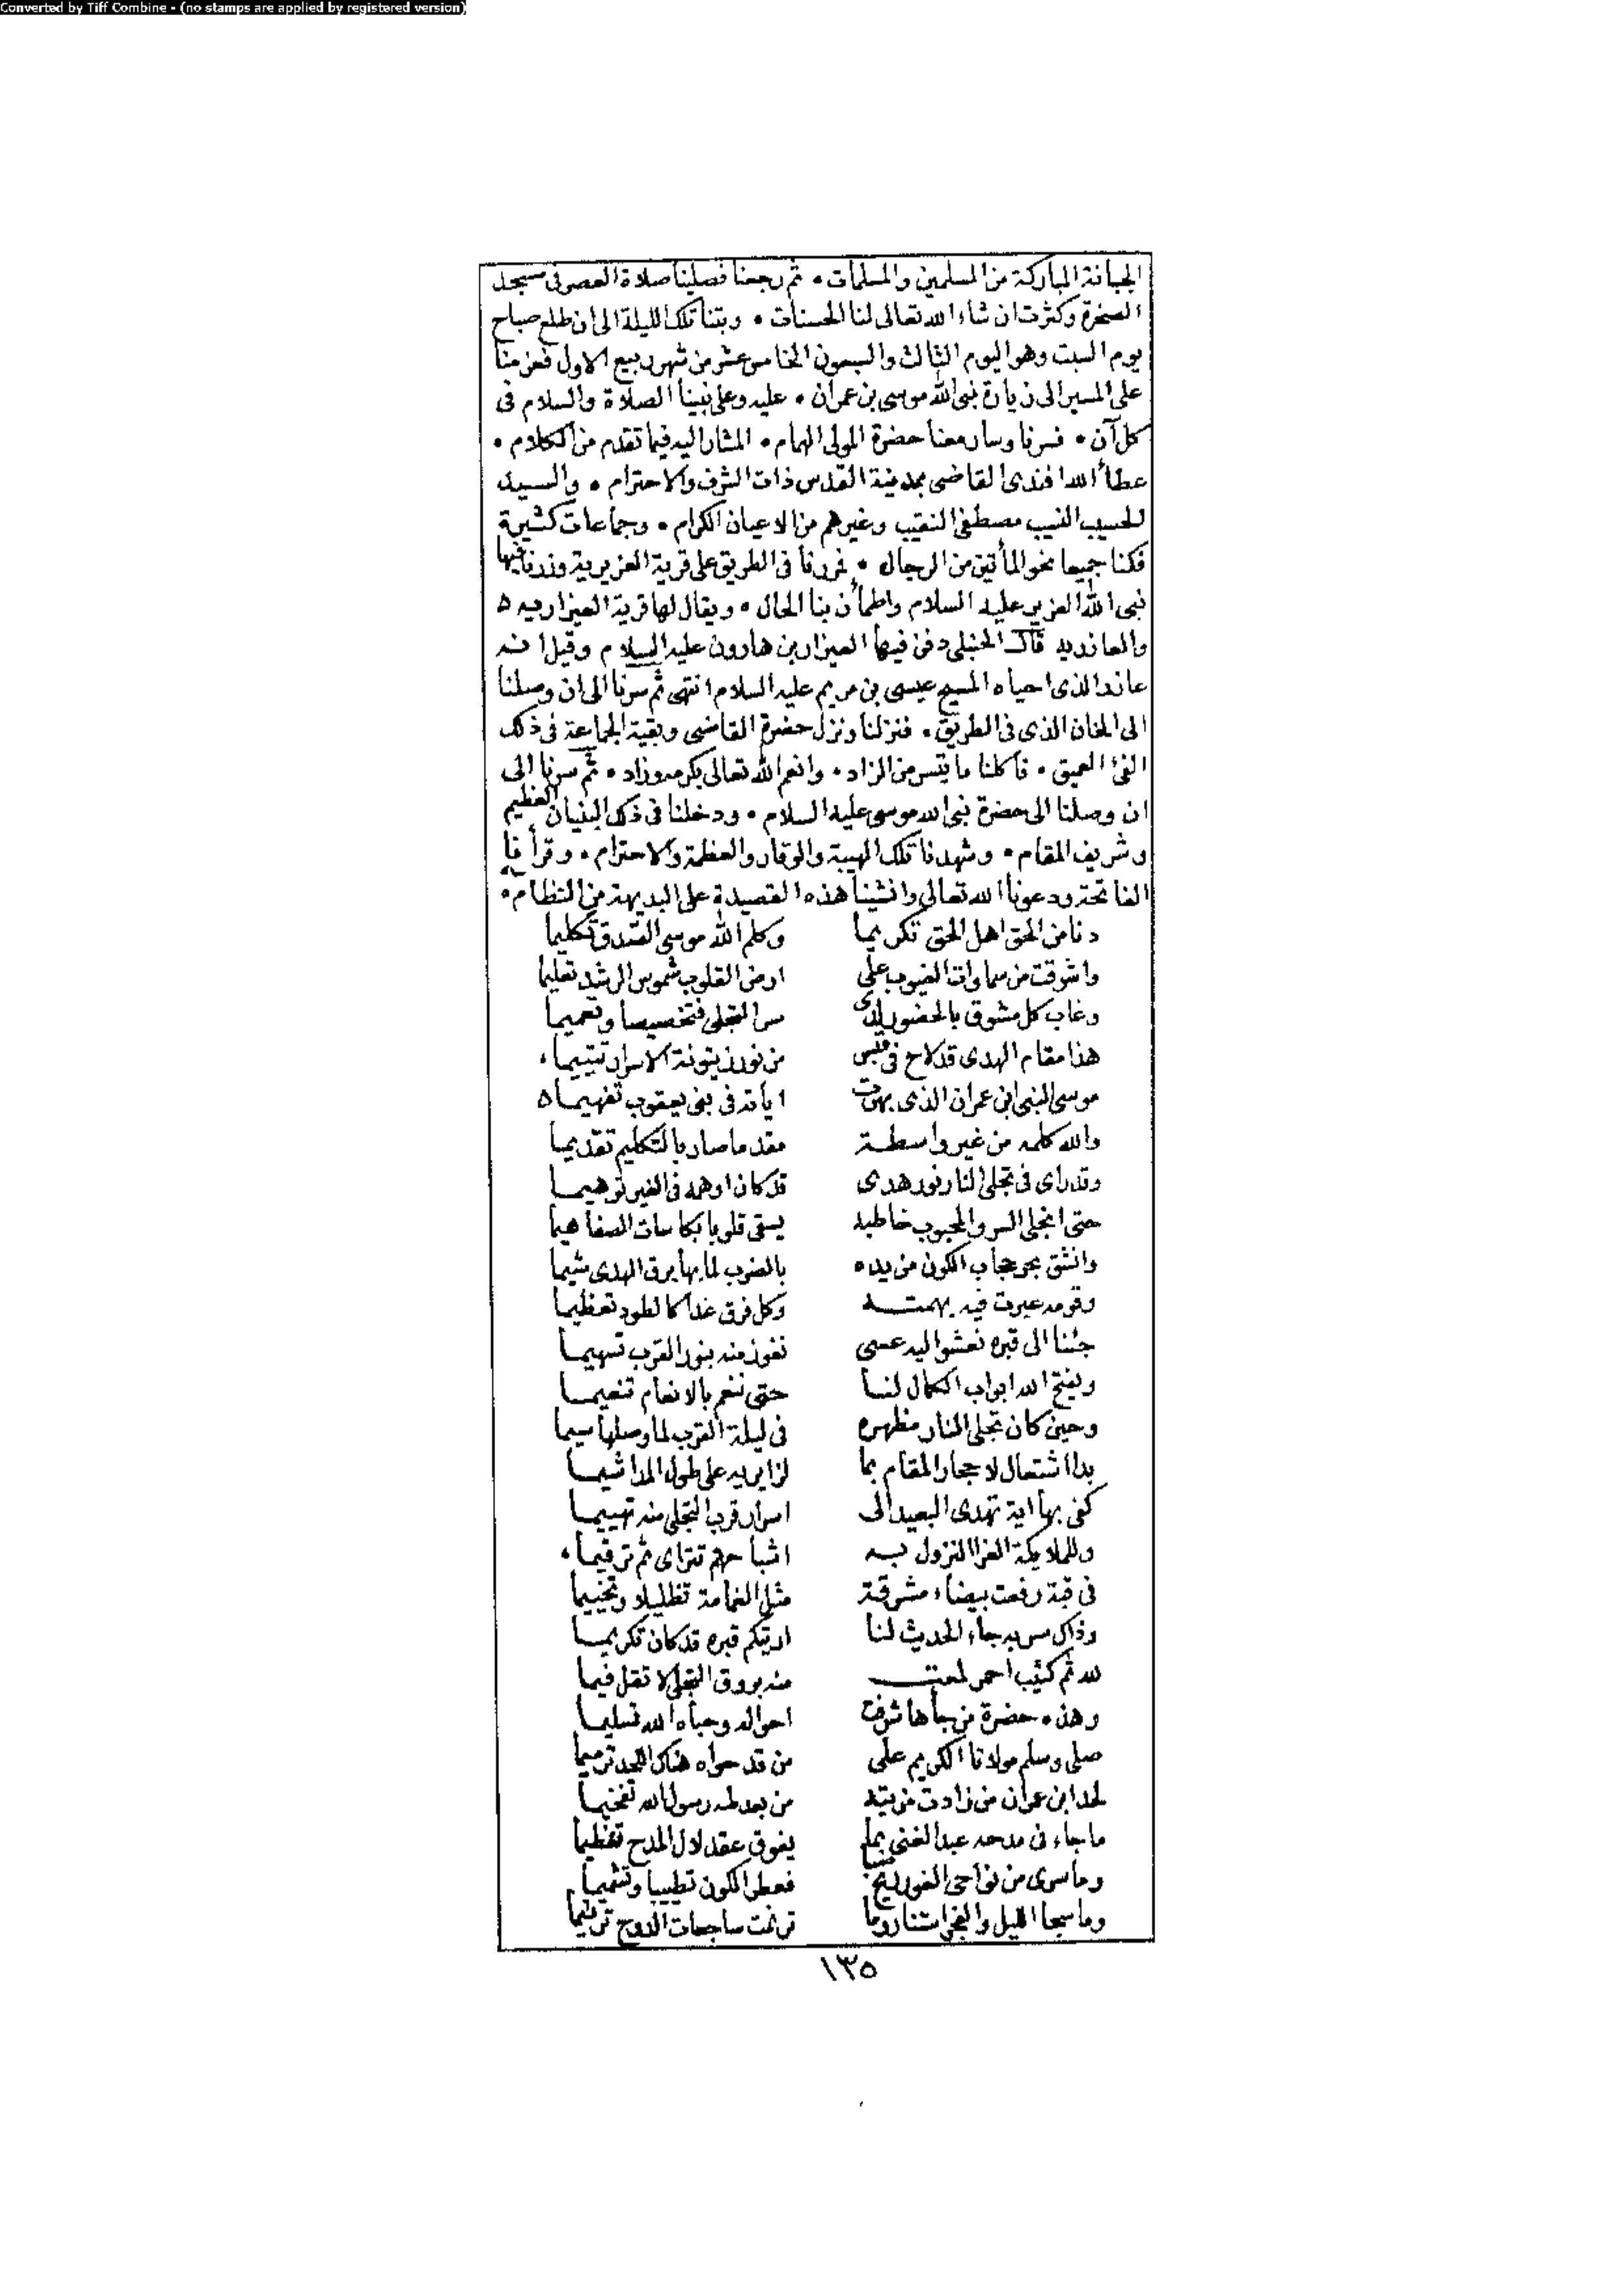 Converted by Tiff Combine - (no stamps are applied by registered version)
الجبانة المباركة من المسلمين والمسلمات • ثم رجعنا فصلينا صلاة العصر فى مسجد
الصخرة وكثرت ان شاء الله تعالى لنا الحسنات • وبتنا تلك الليلة الى ان طلع صباح
يوم السبت وهو اليوم الثالث والسبعون الخامس عشر من شهر ربيع الاول فعزمنا
على المسير الى زيارة نبى الله موسى بن عمران • عليه وعلى نبينا الصلاة والسلام فى
كل آن • فسرنا وسار معنا حضرة المولى الهمام • المشار اليه فيما تقدم من الكلام •
عطأ الله افندى القاضى بمدينة القدس ذات الشرف والاحترام • والسيد
الحسيب النسيب مصطفى النقيب وغيرهم من الاعيان الكرام • وجماعات كثيرة
فكنا جميعا نحو المأتين من الرجال • فمررنا فى الطريق على قرية العزيرية وزرنا فيها
نبى الله العزير عليه السلام واطمأن بنا الحال • ويقال لها قرية العيزارية ه
والعازرية قال الحنبلى دفن فيها العيزار بن هارون عليه السلام وقيل انه
عازر الذى احياه المسيح عيسى بن مريم عليه السلام انتهى ثم سرنا الى ان وصلنا
الى الخان الذى فى الطريق • فنزلنا ونزل حضرة القاضى وبقية الجماعة فى ذلك
الفئ العميق • فأكلنا ما تيسر من الزاد • وانعم الله تعالى بكرمه وزاد • ثم سرنا الى
ان وصلنا الى حضرة نبى الله موسى عليه السلام • ودخلنا فى ذلك البنيان العظيم
وشريف المقام • وشهدنا تلك الهيبة والوقار والعظمة والاحترام • وقرأنا
الفاتحة ودعونا الله تعالى وانشينا هذه القصيدة على البديهة من النظام •
دنا من الحق اهل الحق تكريما وكلم الله موسى الصدق تكليما
واشرقت من سماوات الغيوب على ارض القلوب شموس الرشد تعليما
وغاب كل مشوق بالحضور لدى سر التجلى فتخصيصا وتعميما
هذا مقام الهدى قد لاح فى قبس من نور زيتونة الاسرار تتميما •
موسى النبى ابن عمران الذى بهرت اياته فى بنى يعقوب تفهيما ه
والله كلمه من غير واسطة مقدما صار بالتكليم تقديما
وقد راى فى تجلى النار نور هدى قد كان اوهمه فى الغير توهيما
حتى انجلى السر والمحبوب خاطبه يسقى قلوبا بكاسات الصفا هيما
وانشق بحر حجاب الكون من يده بالضرب لما بها برق الهدى شيما
وقومه عبرت فيه بهمته وكل فرق غدا كالطود تعظيما
جئنا الى قبره نعشو اليه عسى نفوز منه بنور القرب تسهيما
ويفتح الله ابواب الكمال لنا حتى ننعم بالانعام تنعيما
وحين كان تجلى النار مظهره فى ليلة القرب لما وصلها سيما
بدا اشتعال لاحجار المقام بما لزايريه على طول المدا شيما
كفى بها اية تهدى البعيد الى اسرار قرب التجلى منه تهييما
وللملايكة الغر النزول به اشباحهم تتراى ثم ترقيما •
فى قبة رفعت بيضاء مشرقة مثل الغمامة تظليلا وتخييما
وذاك سر به جاء الحديث لنا اريتكم قبره قد كان تكريما
لله ثم كثيب احمر لمعت منه بروق التجلى لا تقل فيما
وهذه حضرة من جأها شرفت احواله وحباه الله تسليما
صلى وسلم مولانا الكريم على من قد حواه هناك اللحد ترميما
لحد ابن عمران من زادت مزيته من بعد طه رسول الله تفخيما
ما جاء فى مدحه عبد الغنى بما يفوق عقد لال المدح تنظيما
وما سرى من نواحى الغور ريح صبا فعطر الكون تطييبا وتشميما
وما سجا الليل والفجر استنار وما ترنمت ساجعات الدوح ترنيما
١٣٥